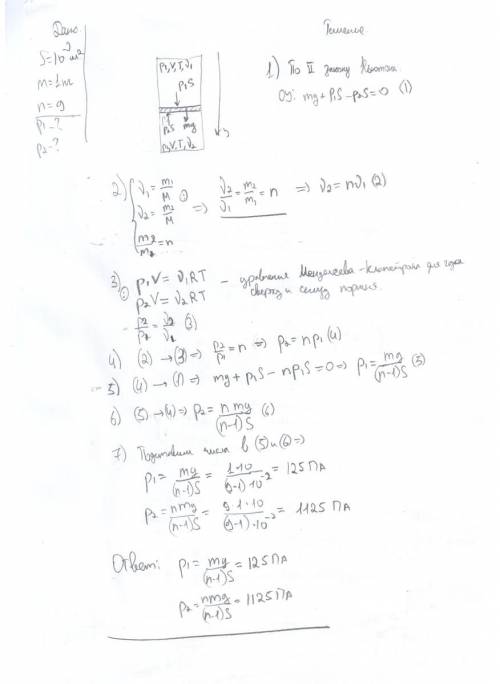 Дано:
S=10⁻² м²
m=1 кг
n=9
p1-?
p2-?
Решение
p1,V,T,ν1
p1S
p2S mg
p2,V,T,ν2
y
1) По II закону Ньютона:
Oy: mg+p1S-p2S=0 (1)
2) ν1=m1/M
ν2=m2/M => ν2/ν1=m2/m1=n => ν2=nν1 (2)
m2/m1=n
3) p1V=ν1RT - уравнение Менделеева-Клапейрона для газа
p2V=ν2RT сверху и снизу поршня.
p2/p1=ν2/ν1 (3)
4) (2)→(3)=> p2/p1=n => p2=np1 (4)
5) (4)→(1)=> mg+p1S-np1S=0=> p1=mg/(n-1)S (5)
6) (5)→(4)=> p2=nmg/(n-1)S (6)
7) Подставим числа в (5) и (6)=>
p1=mg/(n-1)S=1·10/(9-1)·10⁻²=125 Па
p2=nmg/(n-1)S=9·1·10/(9-1)·10⁻²=1125 Па
Ответ: p1=mg/(n-1)S=125 Па
p2=nmg/(n-1)S=1125 Па